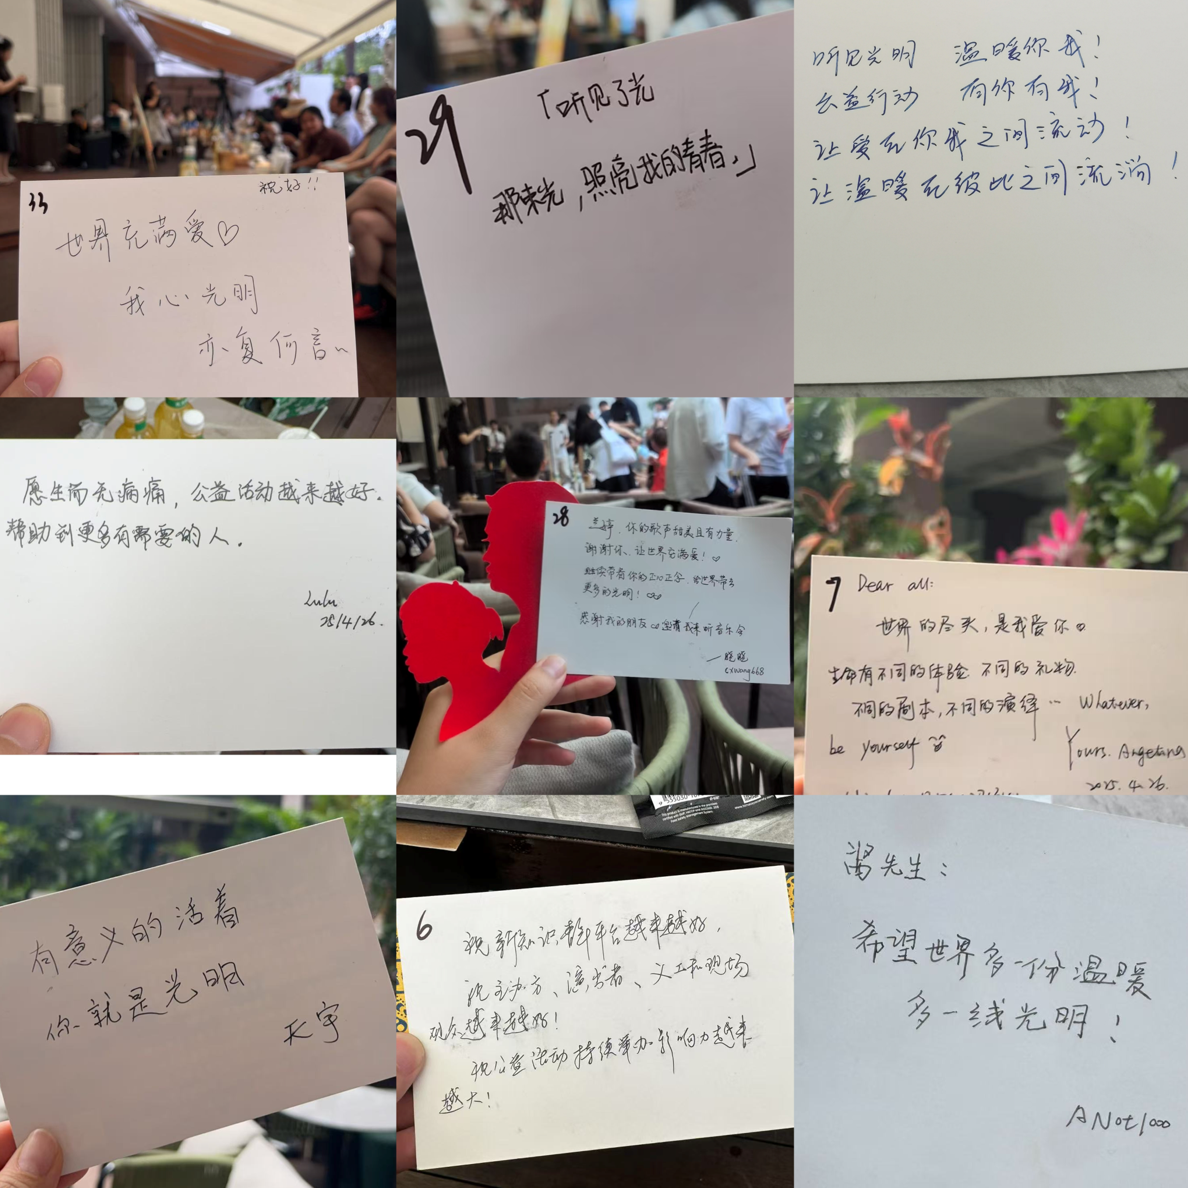 33
祝好!!
世界充满爱♡
我心光明
亦复何言~
29
「听见了光
那束光，照亮我的青春。」
听见光明 温暖你我！
公益行动 有你有我！
让爱在你我之间流动！
让温暖在彼此之间流淌！
愿生而无病痛，公益活动越来越好。
帮助到更多有需要的人。
Lulu
25/4/26.
28
兰婷，你的歌声甜美且有力量，
谢谢你、让世界充满爱！♡
继续带着你的正心正念，给世界带去
更多的光明！♡♡
感谢我的朋友 邀请我来听音乐会
—晓晓
cxwang668
7
Dear all:
世界的尽头，是我爱你♡
生命有不同的体验 不同的礼物.
不同的剧本，不同的演绎… Whatever,
be yourself
Yours. Angelina
2025.4.26.
有意义的活着
你就是光明
天宇
6
祝新知识青年平台越来越好，
祝主办方、演出者、义工和现场
观众越来越好！
祝公益活动持续举办 影响力越来
越大！
冯先生：
希望世界多一份温暖
多一线光明！
ANot1000